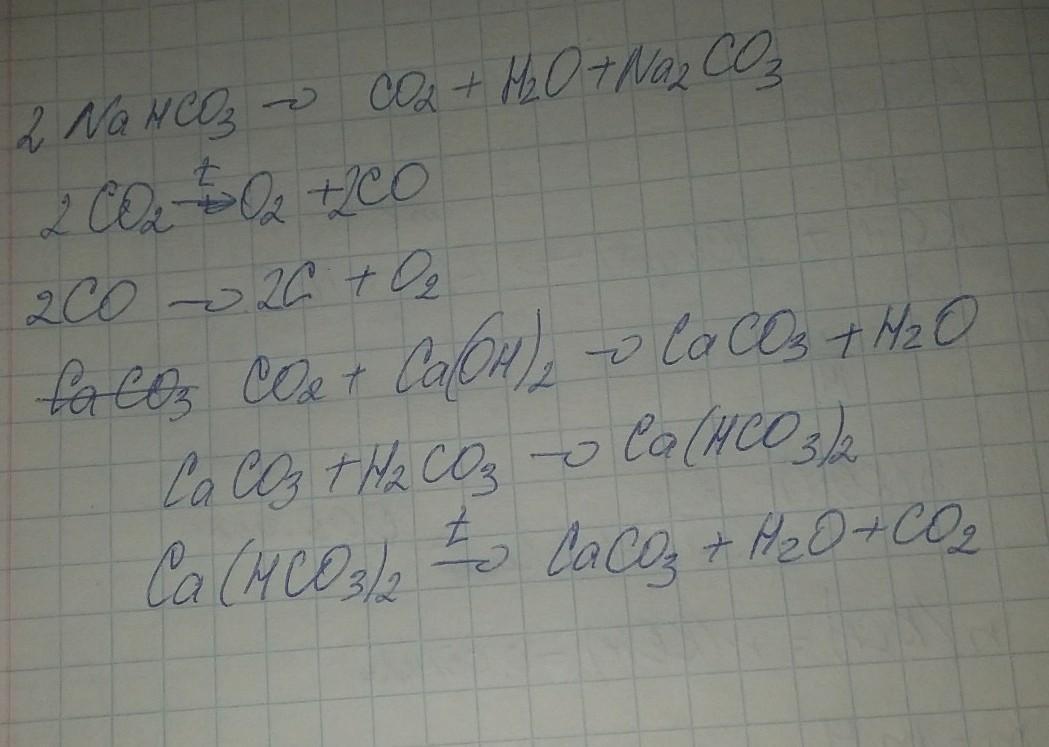 2 NaHCO3 → CO2 + H2O + Na2CO3
2 CO2 t→ O2 + 2CO
2CO → 2C + O2
CaCO3 CO2 + Ca(OH)2 → CaCO3 + H2O
CaCO3 + H2CO3 → Ca(HCO3)2
Ca(HCO3)2 t→ CaCO3 + H2O + CO2